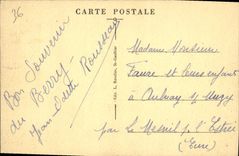 26
CARTE POSTALE
Bon Souvenir
du Berry
Jean Rousseau
Madame Monsieur
Faure et leurs enfants
à Aulnay s/
par Le Mesnil s/ l'Estrée
(Eure)